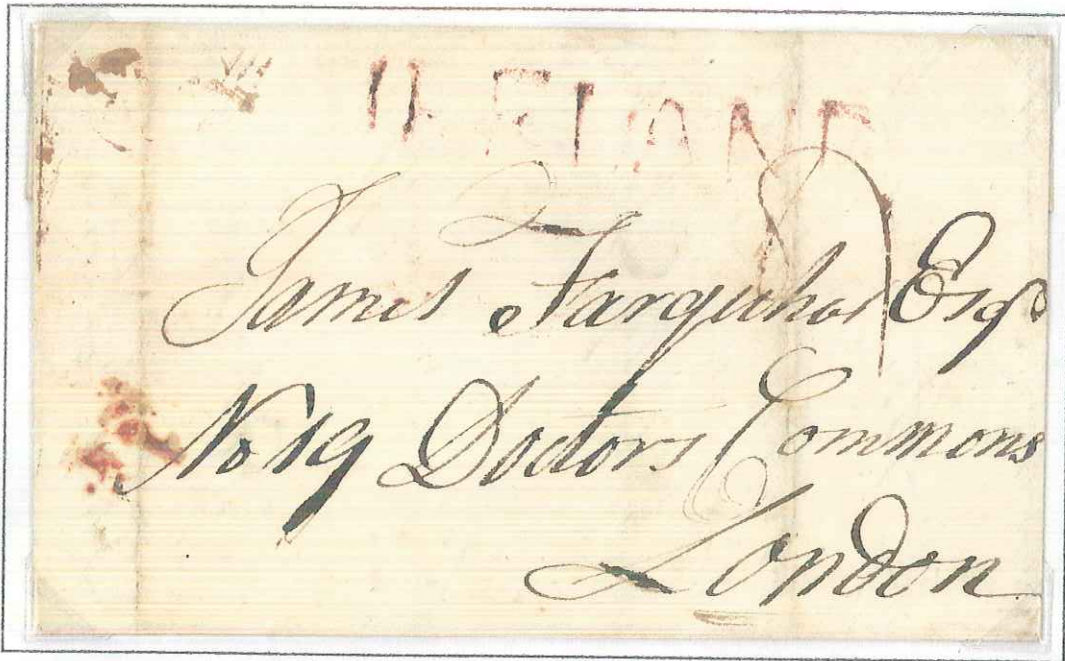 IRELAND
James Farquhar Esqr
No 19 Doctors Commons
London